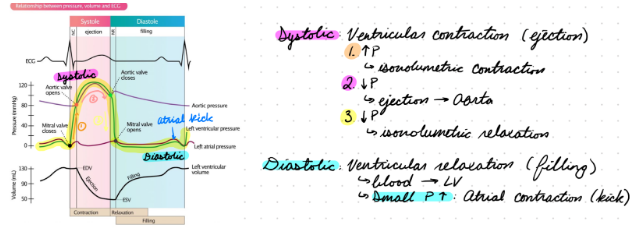 Relationship between pressure, volume and ECG
Systole
Diastole
IC
ejection
IR
filling
ECG
Systolic
Aortic valve
closes
120
Aortic valve
opens
80
Aortic pressure
Pressure (mmHg)
atrial kick
40
Mitral valve
closes
Mitral valve
opens
Left ventricular pressure
0
Left atrial pressure
Diastolic
180
EDV
Left ventricular
volume
Volume (mL)
Ejection
Filling
50
ESV
Contraction
Relaxation
Filling
Systolic: Ventricular contraction (ejection)
1. ↑P
↳ isovolumetric contraction
2. ↓P
↳ ejection → Aorta
3. ↓P
↳ isovolumetric relaxation
Diastolic: Ventricular relaxation (filling)
↳ blood → LV
↳ Small P ↑: Atrial contraction (kick)